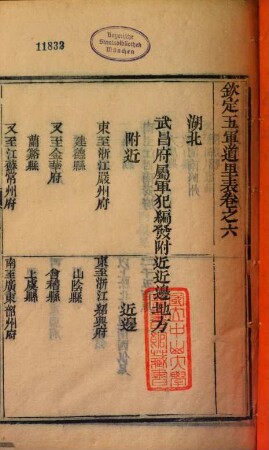 11833
Bayerische
Staatsbibliothek
München
欽定五軍道里表卷之六
湖北
武昌府屬軍犯編發附近近邊地方
附近
近邊
東至浙江嚴州府
東至浙江紹興府
建德縣
山陰縣
又至金華府
會稽縣
蘭谿縣
上虞縣
又至江蘇常州府
南至廣東韶州府